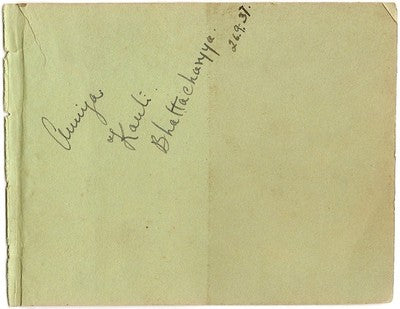 Amiya
Kanti
Bhattacharyya.
26.9.37.